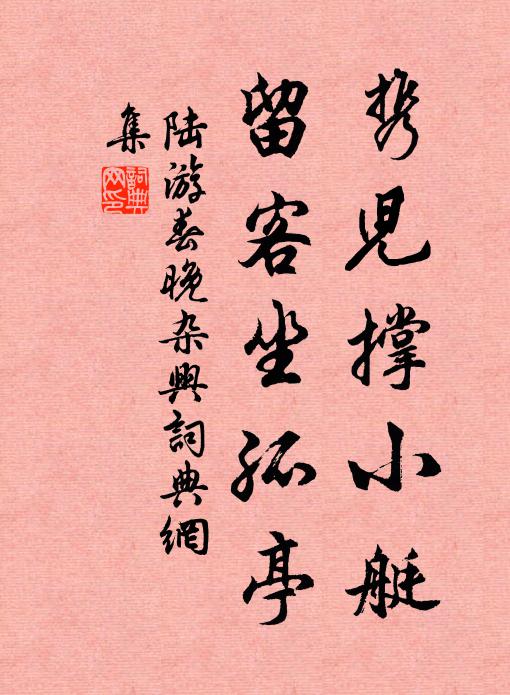 携兒撑小艇
留客坐孤亭
陆游春晚杂興詞典網
集
詞典網印